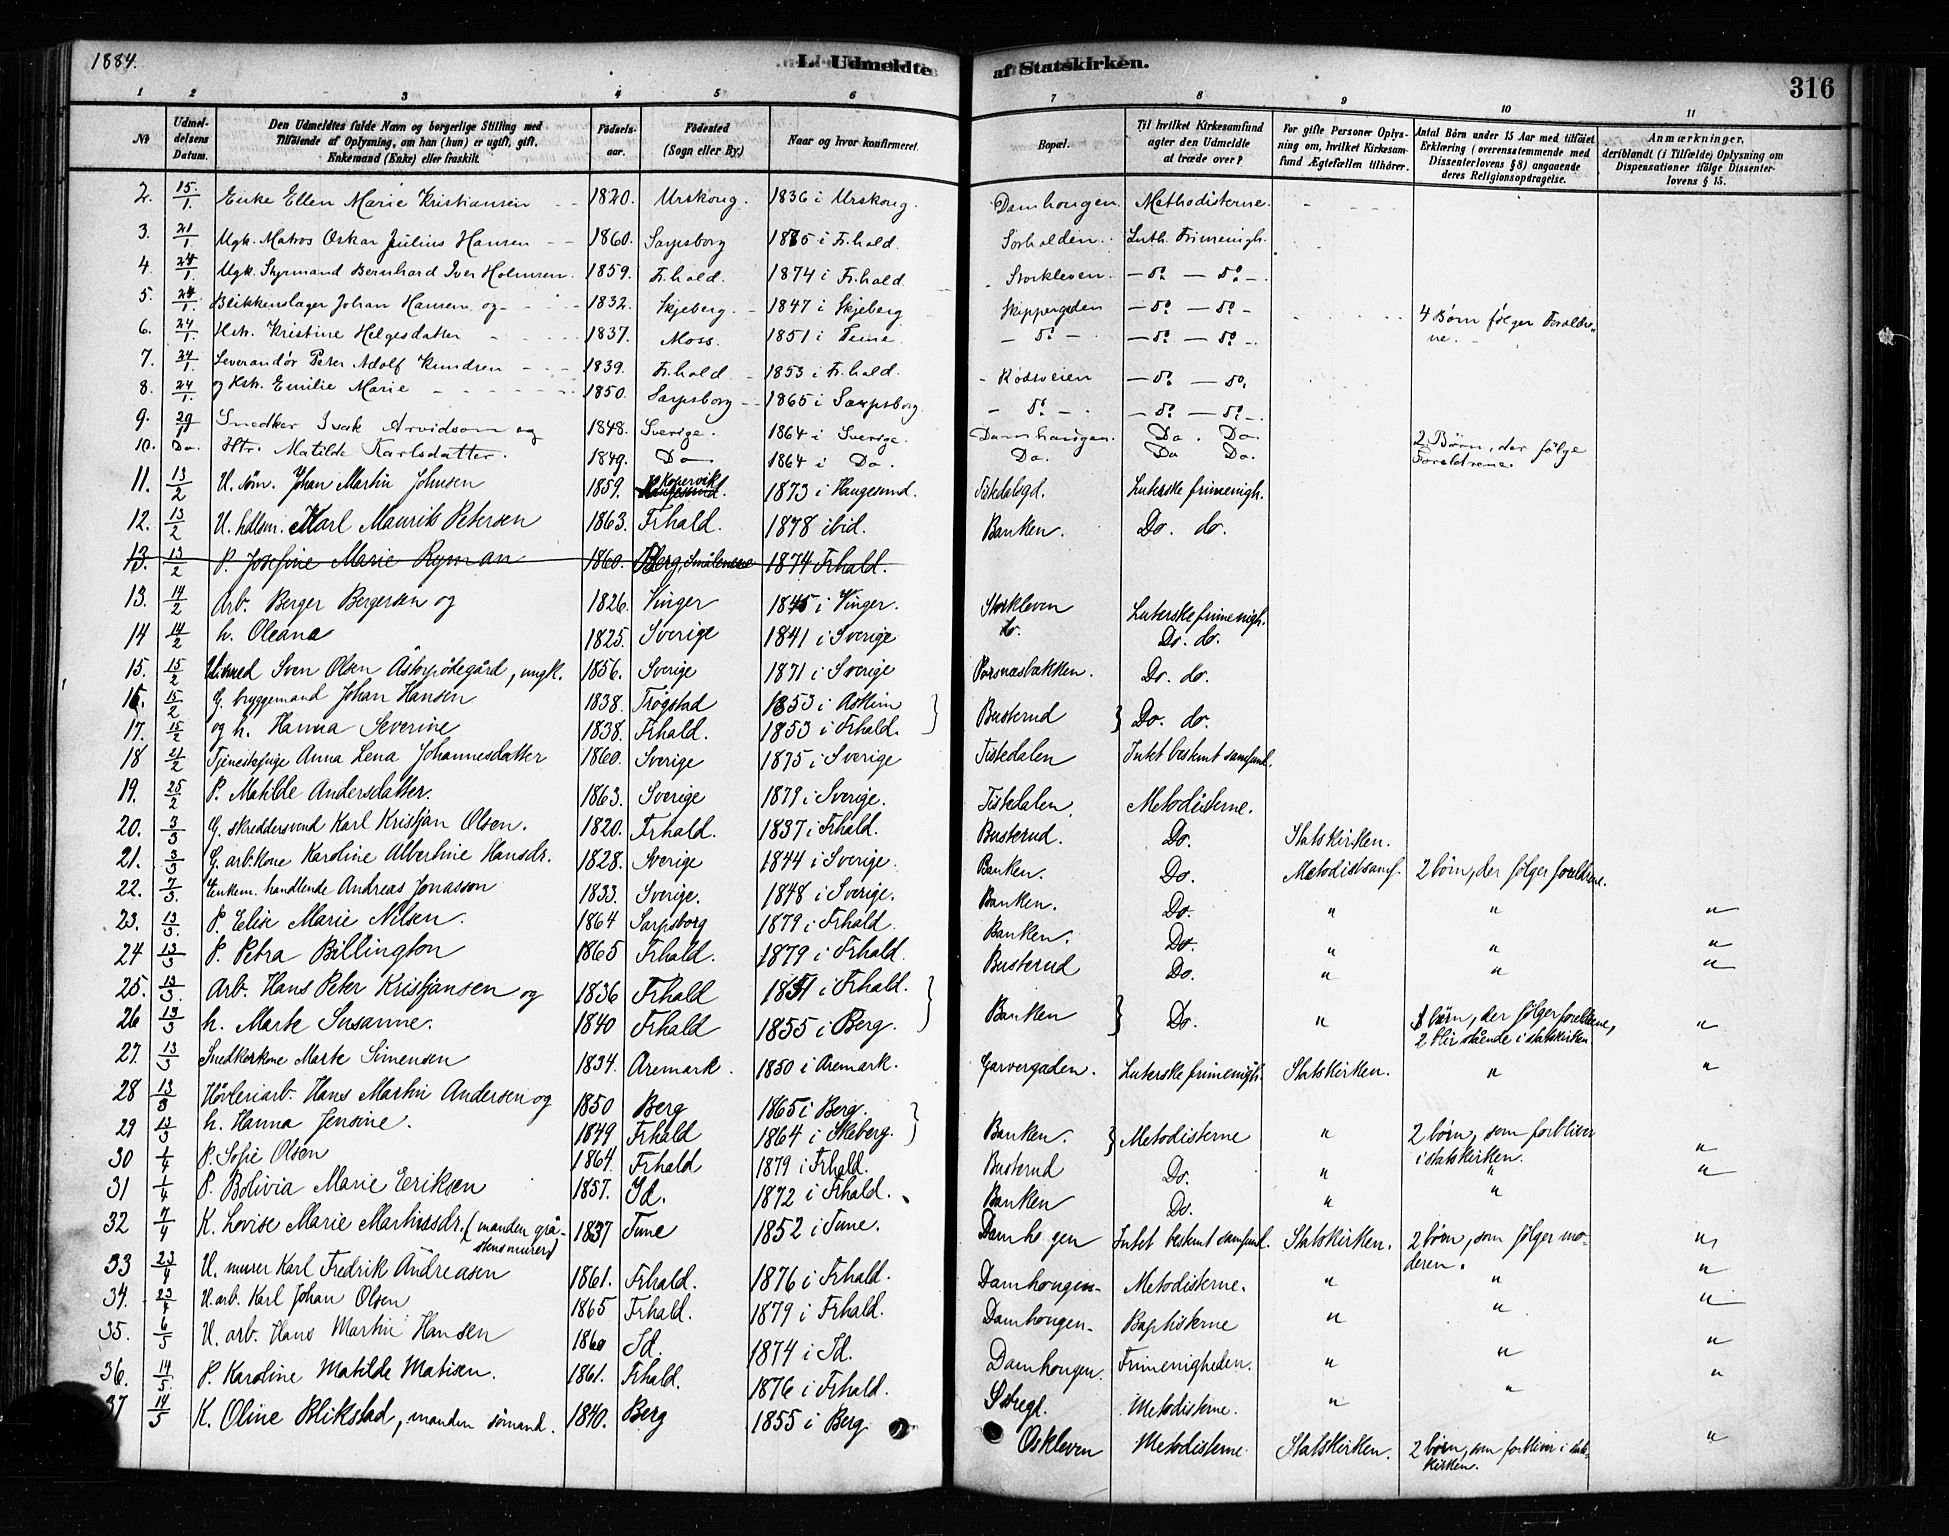 1884.
L. Udmeldte af Statskirken.
316
1 2 3 4 5 6 7 8 9 10 11
No
Udmeldelsens Datum.
Den Udmeldtes fulde Navn og borgerlige Stilling med Tilføiende af Oplysning, om han (hun) er ugift, gift, Enkemand (Enke) eller fraskilt.
Fødselsaar.
Fødested (Sogn eller By.)
Naar og hvor konfirmeret.
Bopæl.
Til hvilket Kirkesamfund agter den Udmeldte at træde over?
For gifte Personer Oplysning om, hvilket Kirkesamfund Ægtefællen tilhører.
Antal Børn under 15 Aar med tilføiet Erklæring (overensstemmende med Dissenterlovens § 8) angaaende deres Religionsopdragelse.
Anmærkninger, deriblandt (i Tilfælde) Oplysning om Dispensationer ifølge Dissenterlovens § 15.
2. 15/1. Enke Ellen Marie Kristiansen 1820. Urskoug. 1836 i Urskoug. Damhougen. Methodisterne.
3. 21/1 Ugk. Matros Oskar Julius Hansen 1860. Sarpsborg 1875 i Fr.hald. Sørhalden. Luth. Frimenigh.
4. 24/1. Ugk. Styrmand Bernhard Iver Holmsen 1859. Fr.hald. 1874 i Fr.hald. Storkleven. do do
5. 24/1. Blikkenslager Johan Hansen og 1832. Skjeberg. 1847 i Skjeberg Skippergaden do do 4 Børn følger Foraldrene.
6. 24/1 Hstr. Kristine Helgesdatter 1837. Moss. 1851 i Tune do do do
7. 24/1 Leverandør Peter Adolf Knudsen 1839. Fr.hald 1853 i Fr.hald. Rødsveien do do
8. 24/1. og Hstr. Emilie Marie 1850. Sarpsborg 1865 i Sarpsborg. do do do
9. 29/1 Snedker Isak Arvidson og 1848. Sverige. 1864 i Sverige. Damhaugen. Do. Do. 2 Børn, der følge Forældrene.
10. Do. Hstr. Matilde Karlsdatter. 1849. Do 1864 i Do. Do. Do Do.
11. 13/2 U. søm. Johan Martin Johnsen 1859. Kopervik 1873 i Haugesund. Tistedalsgd. Luterske frimenigh.
12. 13/2 U. hdlsm. Karl Maurits Petersen 1863. Frhald. 1878 ibid. Banken. Do. do.
13. 13/2 P. Josefine Marie Ryman 1860. Berg, Smålenene 1874 Frhald.
13. 14/2 Arb. Berger Bergersen og 1826. Vinger 1845 i Vinger. Storkleven Luterske frimenigh.
14 14/2 h. Oleana 1825. Sverige 1841 i Sverige do. Do. do.
15. 15/2 Sven Olsen Åsbysødegård, ungk. 1856. Sverige 1871 i Sverige Porsnæsbækken. Do. do.
16. 15/2 G. bryggemand Johan Hansen 1838. Trøgstad 1853 i Askim } Busterud } Do. do.
17. 15/2 og h. Hanna Severine 1838. Frhald. 1853 i Frhald.
18 21/2 Tjenestepige Anna Lena Johannesdatter 1860. Sverige 1875 i Sverige Tistedalen Intet bestemt samfund.
19. 25/2 P. Matilde Andersdatter. 1863. Sverige 1879 i Sverige. Tistedalen. Metodisterne.
20. 3/3 G. skreddersvend Karl Kristjan Olsen. 1820. Frhald. 1837 i Frhald. Busterud. Do. Statskirken.
21. 3/3 G. arb.kone Karoline Albertine Hansdr. 1828. Sverige 1844 i Sverige Banken. Do. Metodistsamf. 2 børn, der følger foreldrene.
22. 7/3. Enkem. handlende Andreas Jonasson 1833. Sverige. 1848 i Sverige. Banken. Do. " " "
23. 13/3. P. Elise Marie Nilsen. 1864 Sarpsborg 1879 i Frhald. Banken. Do. " " "
24 13/3 P. Petra Billington 1865 Frhald. 1879 i Frhald. Busterud Do. " " "
25. 13/3. Arb. Hans Peter Kristjansen og 1836 Frhald 1851 i Frhald. } Banken } Do. " børn, der følger foreldrene, 2 blir stående i statskirken. "
26 13/3 h. Marte Susanne. 1840 Frhald 1855 i Berg.
27. 13/3 Snedkerkone Marte Simensen 1834. Aremark. 1850 i Aremark. Garvergaden. Luterske frimenigh. Statskirken. " "
28 13/3 Høvleriarb. Hans Martin Andersen og 1850 Berg 1865 i Berg. } Banken. } Metodisterne " 2 børn, som forbliver i statskirken. "
29 13/3 h. Hanna Jensine. 1849 Frhald 1864 i Skeberg.
30 1/4 P. Sofie Olsen 1864. Frhald 1879 i Frhald. Busterud Do. " " "
31 1/4 P. Bolivia Marie Eriksen 1857. Id. 1872 i Frhald. Banken Do. " "
32 7/4 K. Lovise Marie Martinsdr. (manden gråstensmurer) 1837 Tune 1852 i Tune. Damhogen Intet bestemt samfund. Statskirken. 2 børn, som følger moderen. "
33 23/4 U. murer Karl Fredrik Andreasen 1861. Frhald. 1876 i Frhald. Damhougen Metodisterne. " " "
34. 23/4 U. arb. Karl Johan Olsen 1865 Frhald. 1879 i Frhald. Damhougen Baptisterne " " "
35. 6/5 U. arb. Hans Martin Hansen 1860 Id. 1874 i Id. Damhougen. Frimenigheden. " " "
36. 14/5. P. Karoline Matilde Matisen. 1861. Frhald. 1876 i Frhald. Metodisterne. " " "
37 14/5 K. Oline Blikstad, manden sømand. 1840. Berg 1855 i Berg Oskleven Metodisterne Statskirken. 2 børn, som forbliver i statskirken. "